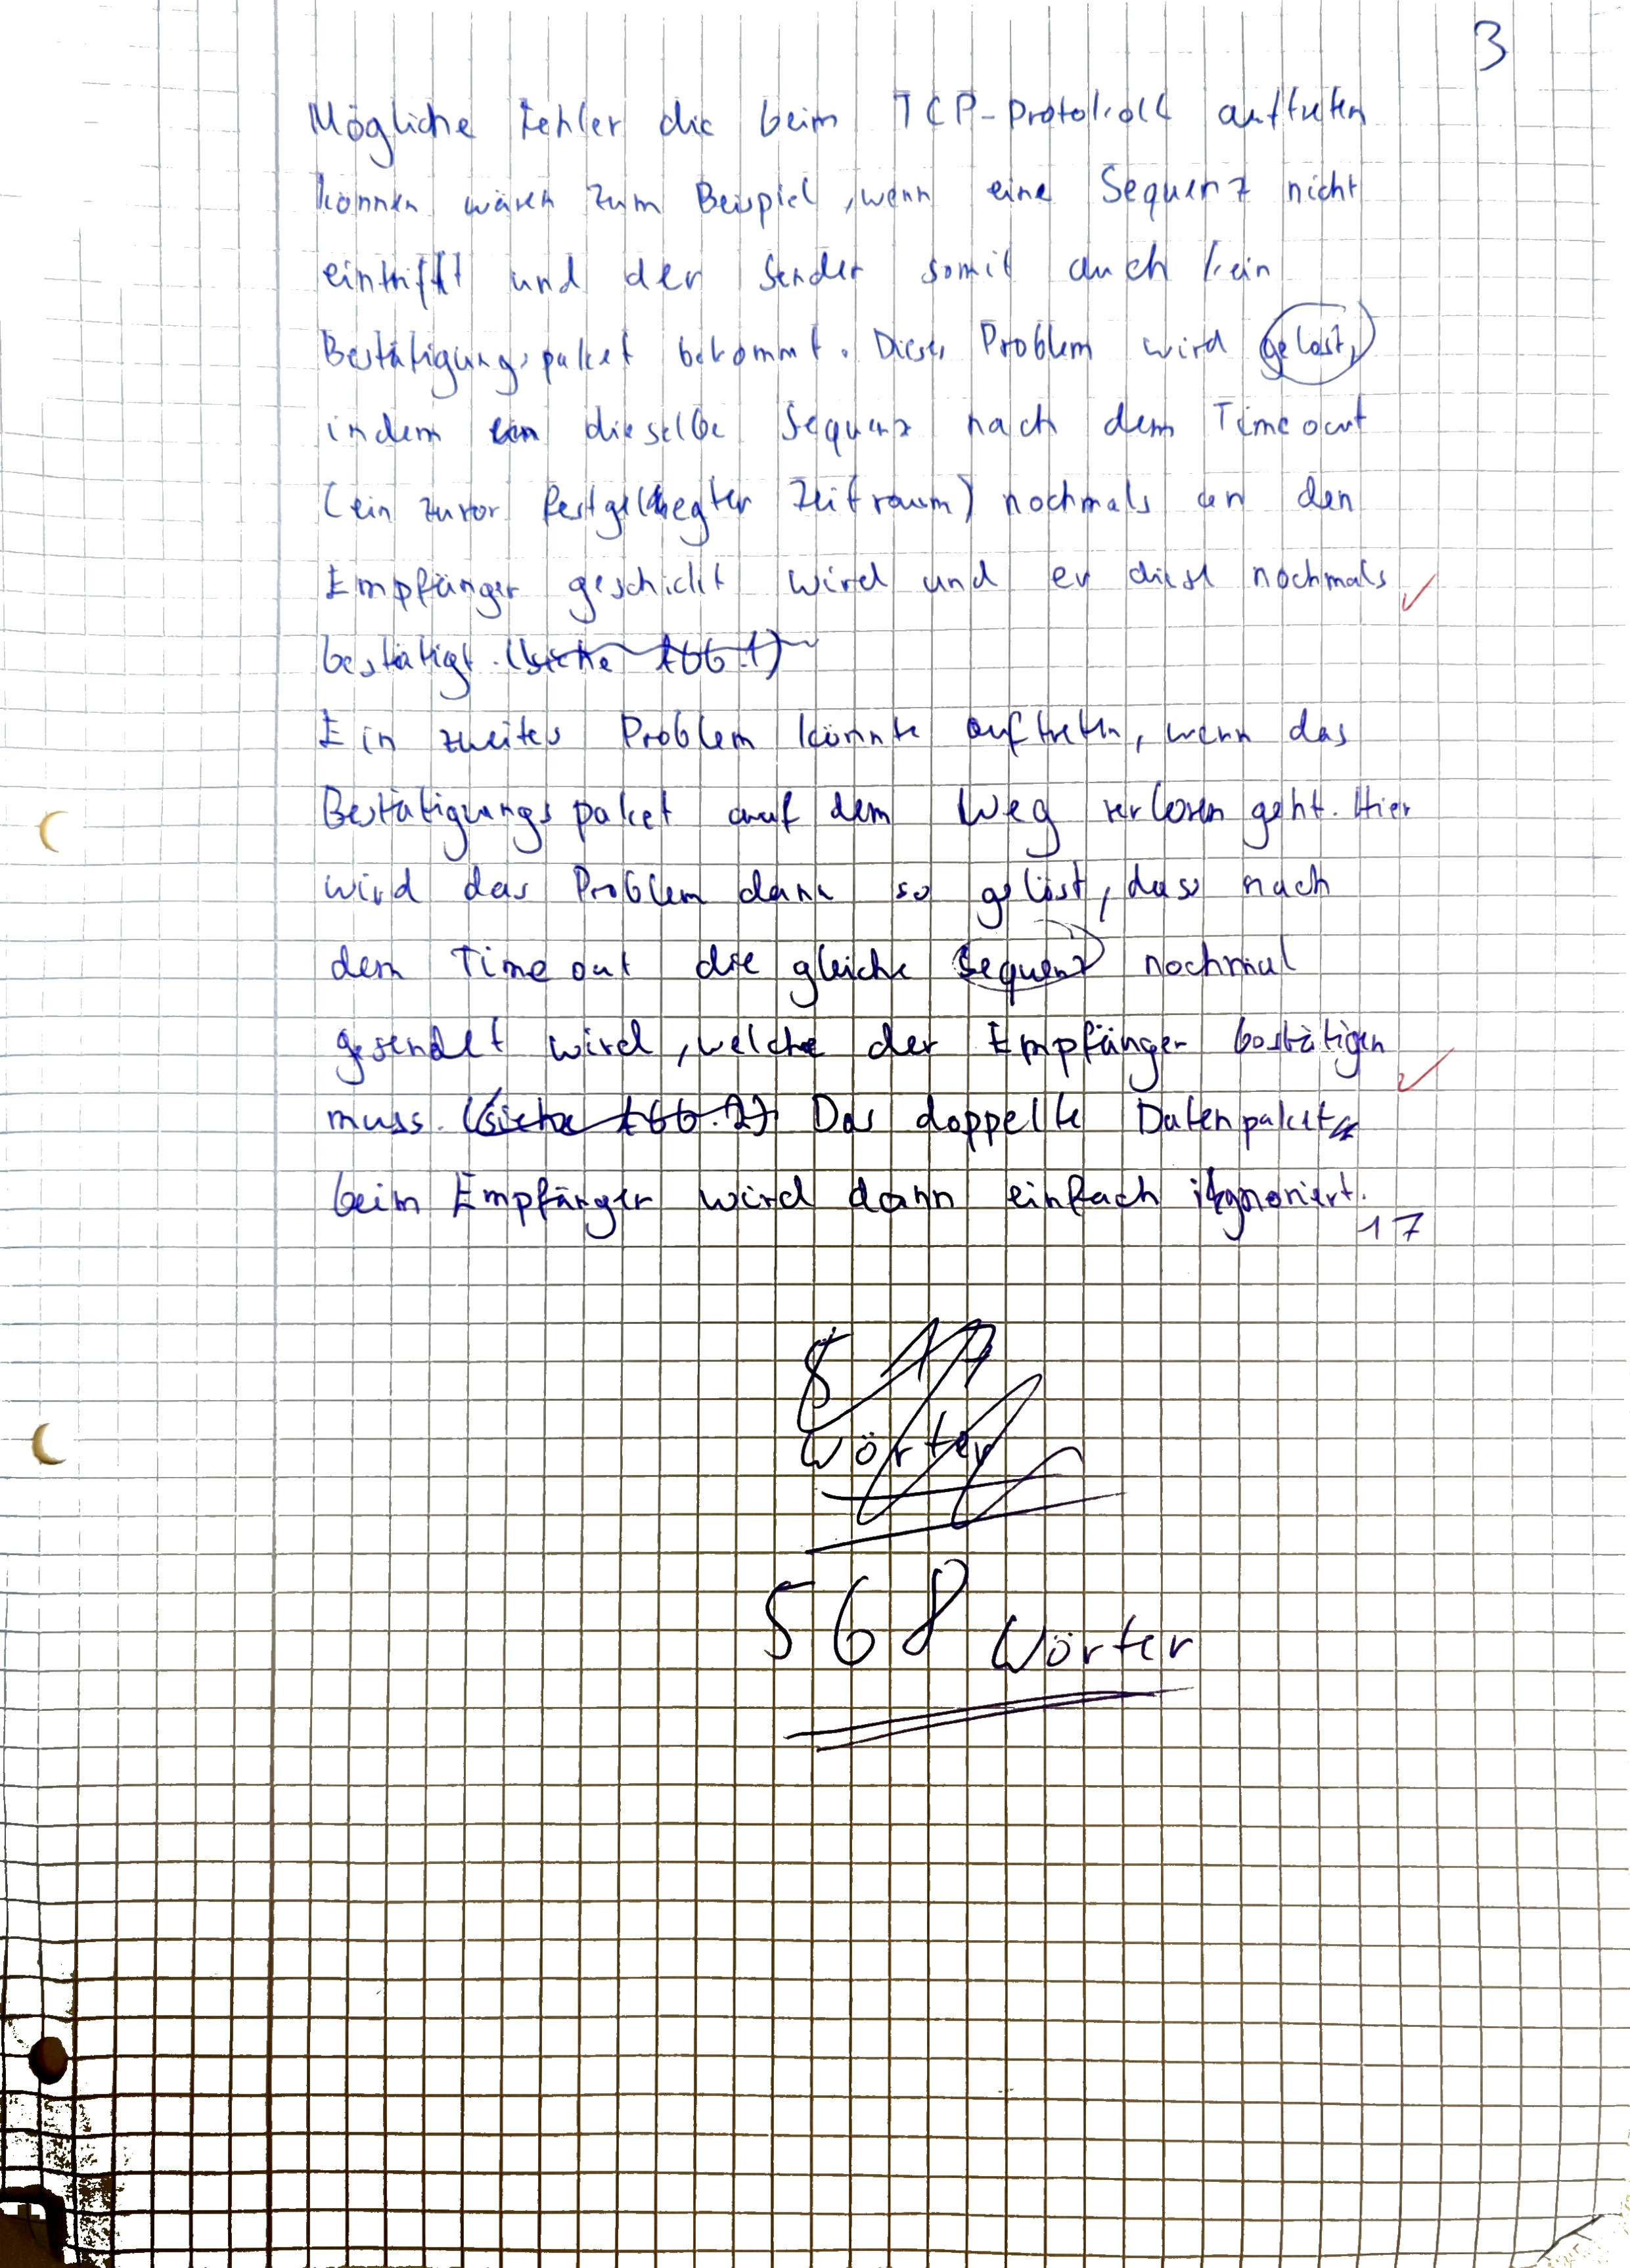 3
Mögliche Fehler die beim TCP-Protokoll auftreten
können wären zum Beispiel, wenn eine Sequenz nicht
eintrifft und der Sender somit auch kein
Bestätigungspaket bekommt. Dieses Problem wird gelöst,
indem ein dieselbe Sequenz nach dem Timeout
(ein zuvor festgelegter Zeitraum) nochmals an den
Empfänger geschickt wird und er diese nochmals
bestätigt. (siehe Abb. 1)
Ein zweites Problem könnte auftreten, wenn das
Bestätigungspaket auf dem Weg verloren geht. Hier
wird das Problem dann so gelöst, dass nach
dem Timeout die gleiche Sequenz nochmal
gesendet wird, welche der Empfänger bestätigen
muss. (siehe Abb. 2) Das doppelte Datenpaket
beim Empfänger wird dann einfach ignoriert.
17
Wörter
568 Wörter